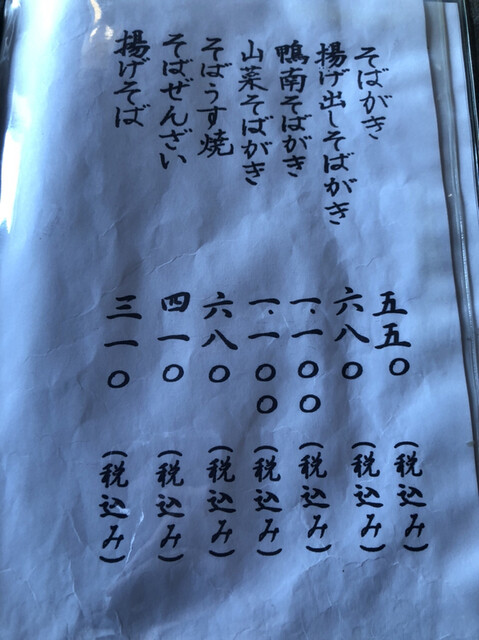 そばがき 五五〇 (税込み)
揚げ出しそばがき 六八〇 (税込み)
鴨南そばがき 一、一〇〇 (税込み)
山菜そばがき 一、一〇〇 (税込み)
そばうす焼 六八〇 (税込み)
そばぜんざい 四一〇 (税込み)
揚げそば 三一〇 (税込み)